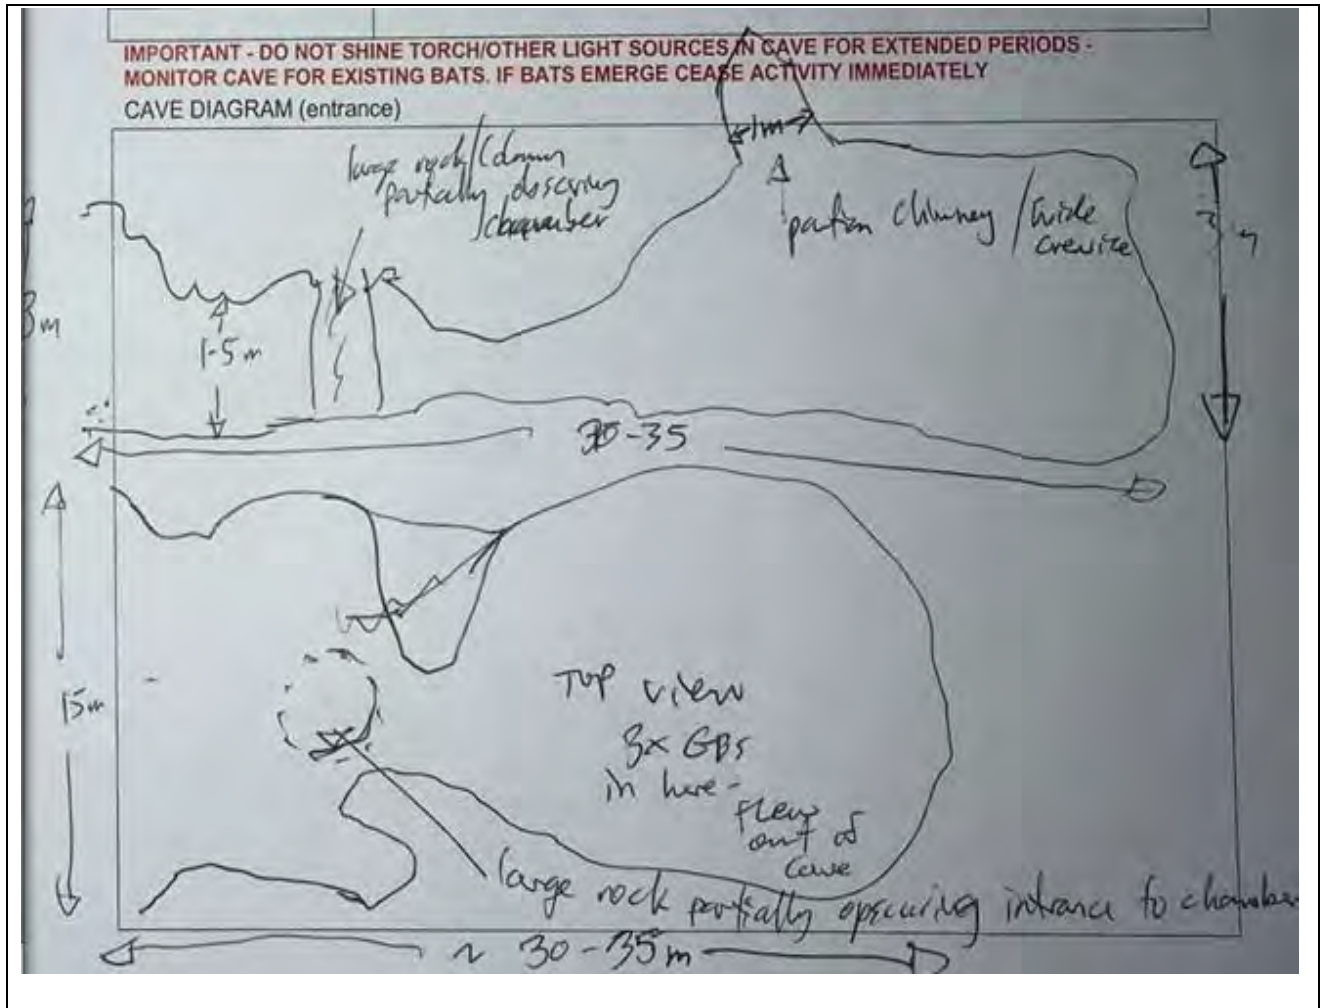 IMPORTANT - DO NOT SHINE TORCH/OTHER LIGHT SOURCES IN CAVE FOR EXTENDED PERIODS -
MONITOR CAVE FOR EXISTING BATS. IF BATS EMERGE CEASE ACTIVITY IMMEDIATELY
CAVE DIAGRAM (entrance)
1m
large rock/
partially obscuring
chamber
chimney / wide
crevice
3
m
1-5m
30-35
15m
TOP view
3x GBs
in here -
flew
out of
cave
large rock partially opscuring intrance to chamber
~ 30-35m